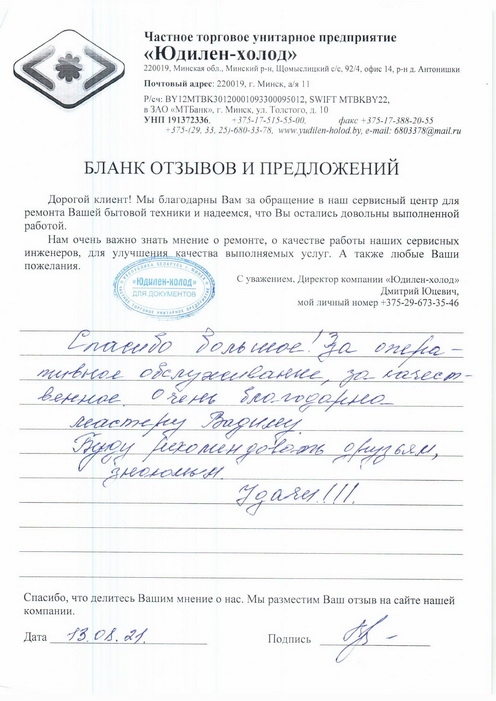 Частное торговое унитарное предприятие
«Юдилен-холод»
220019, Минская обл., Минский р-н, Щомыслицкий с/с, 92/4, офис 14, р-н д. Антонишки
Почтовый адрес: 220019, г. Минск, а/я 11
Р/сч: BY12MTBK30120001093300095012, SWIFT MTBKBY22,
в ЗАО «МТБанк», г. Минск, ул. Толстого, д. 10
УНП 191372336, +375-17-515-55-00, факс +375-17-388-20-55
+375-(29, 33, 25)-680-33-78, www.yudilen-holod.by, e-mail: 6803378@mail.ru
БЛАНК ОТЗЫВОВ И ПРЕДЛОЖЕНИЙ
Дорогой клиент! Мы благодарны Вам за обращение в наш сервисный центр для
ремонта Вашей бытовой техники и надеемся, что Вы остались довольны выполненной
работой.
Нам очень важно знать мнение о ремонте, о качестве работы наших сервисных
инженеров, для улучшения качества выполняемых услуг. А также любые Ваши
пожелания.
«Юдилен-холод»
ДЛЯ ДОКУМЕНТОВ
С уважением, Директор компании «Юдилен-холод»
Дмитрий Юцевич,
мой личный номер +375-29-673-35-46
Спасибо большое! За опера-
тивное обслуживание, за качест-
венное. Очень благодарна
мастеру Вадиму.
Буду рекомендовать друзьям,
знакомым.
Удачи!!!.
Спасибо, что делитесь Вашим мнение о нас. Мы разместим Ваш отзыв на сайте нашей
компании.
Дата 13.08.21. Подпись